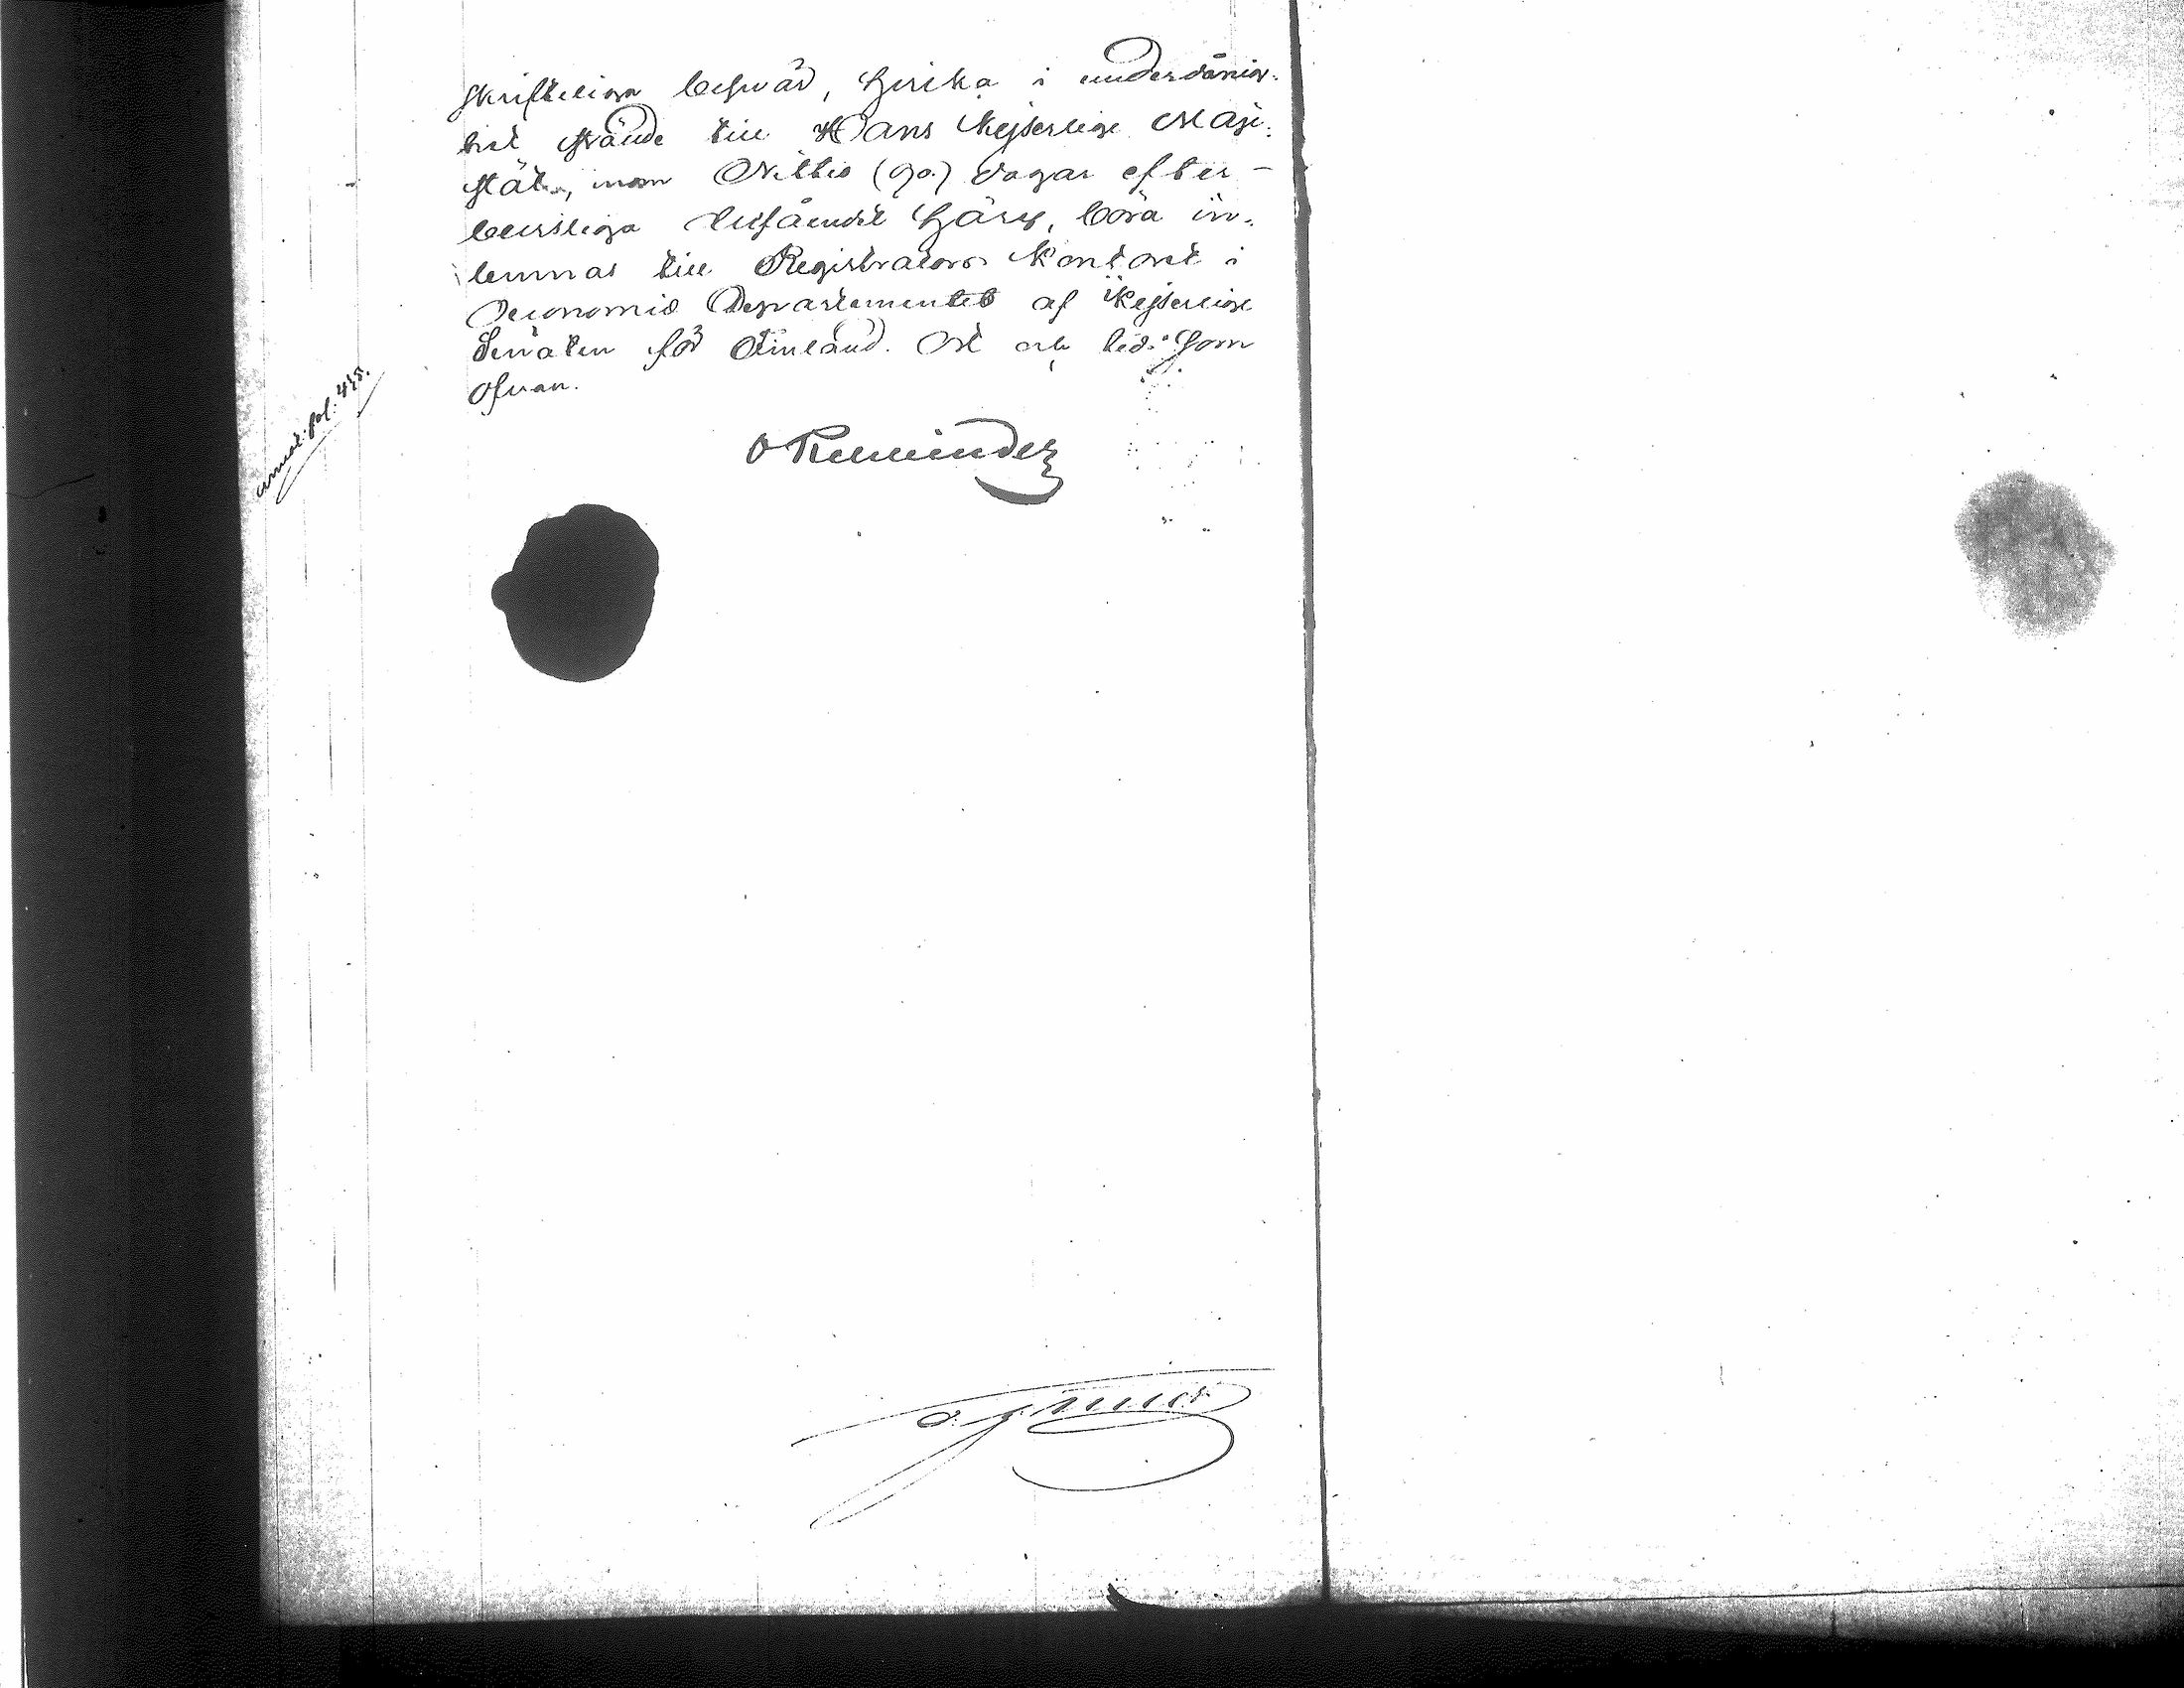 skrifteliga besvär, hvilka i underdånig-
het ställde till Hans Kejserlige Maje-
stät, inom Nittio (90.) dagar efter
bevisliga utfåendet häraf, böra in-
lemnas till Registrators Kontoret i
Oeconomie Departementet af Kejserlige
Senaten för Finland. Ort och tid som
ofvan.
anmäl. fol. 428.